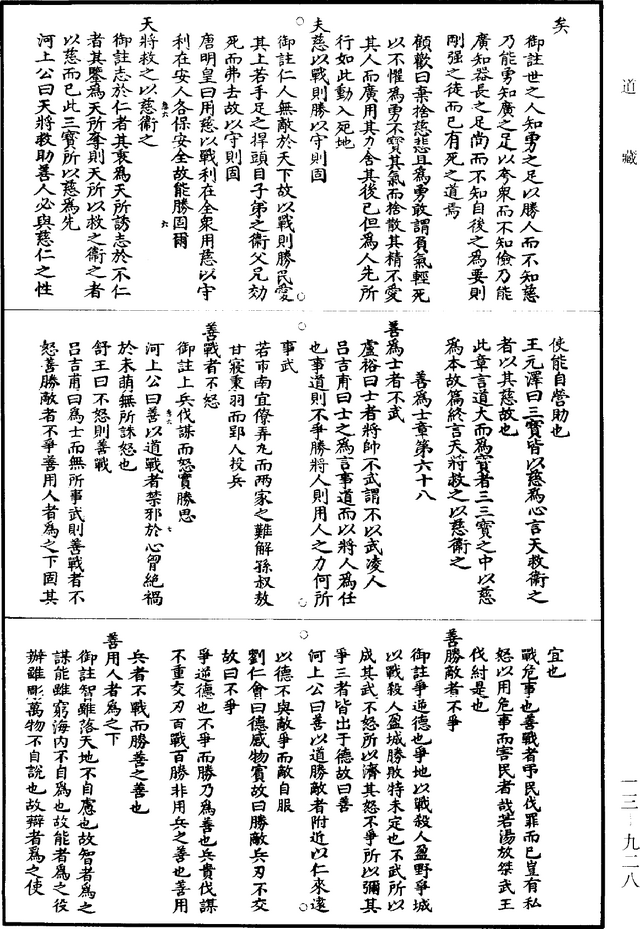 道藏
一三—九二八
矣
御註世之人知勇之足以勝人而不知慈
乃能勇知廣之足以夸衆而不知儉乃能
廣知器長之足尚而不知自後之爲要則
剛强之徒而已有死之道焉
顧歡曰棄捨慈悲且爲勇敢謂負氣輕死
以不懼爲勇不寶其氣而捨散其精不愛
其人而廣用其力舍其後已但爲人先所
行如此動入死地
夫慈以戰則勝以守則固
御註仁人無敵於天下故以戰則勝民愛
其上若手足之捍頭目子弟之衞父兄効
死而弗去故以守則固
唐明皇曰用慈以戰利在全衆用慈以守
利在安人各保安全故能勝固爾
天將救之以慈衞之
御註志於仁者其衷爲天所誘志於不仁
者其鑒爲天所奪則天所以救之衞之者
以慈而已此三寶所以慈爲先
河上公曰天將救助善人必與慈仁之性
使能自營助也
王元澤曰三寶皆以慈爲心言天救衞之
者以其慈故也
此章言道大而爲寶者三三寶之中以慈
爲本故篇終言天將救之以慈衞之
善爲士章第六十八
善爲士者不武
盧裕曰士者將帥不武謂不以武凌人
吕吉甫曰士之爲言事道而以將人爲任
也事道則不爭勝將人則用人之力何所
事武
若市南宜僚弄丸而兩家之難解孫叔敖
甘寢秉羽而郢人投兵
善戰者不怒
御註上兵伐謀而怒實勝思
河上公曰善以道戰者禁邪於心胷絶禍
於未萌無所誅怒也
舒王曰不怒則善戰
吕吉甫曰爲士而無所事武則善戰者不
怒善勝敵者不爭善用人者爲之下固其
宜也
戰危事也善戰者弔民伐罪而已豈有私
怒以用危事而害民者哉若湯放桀武王
伐紂是也
善勝敵者不爭
御註爭逆德也爭地以戰殺人盈野爭城
以戰殺人盈城勝敗特未定也不武所以
成其武不怒所以濟其怒不爭所以彌其
爭三者皆出于德故曰善
河上公曰善以道勝敵者附近以仁來遠
以德不與敵爭而敵自服
劉仁會曰德感物賓故曰勝敵兵刃不交
故曰不爭
爭逆德也不爭而勝乃爲善也兵貴伐謀
不重交刃百戰百勝非用兵之善也善用
兵者不戰而勝善之善也
善用人者爲之下
御註智雖落天地不自慮也故智者爲之
謀能雖窮海内不自爲也故能者爲之役
辯雖彫萬物不自說也故辯者爲之使